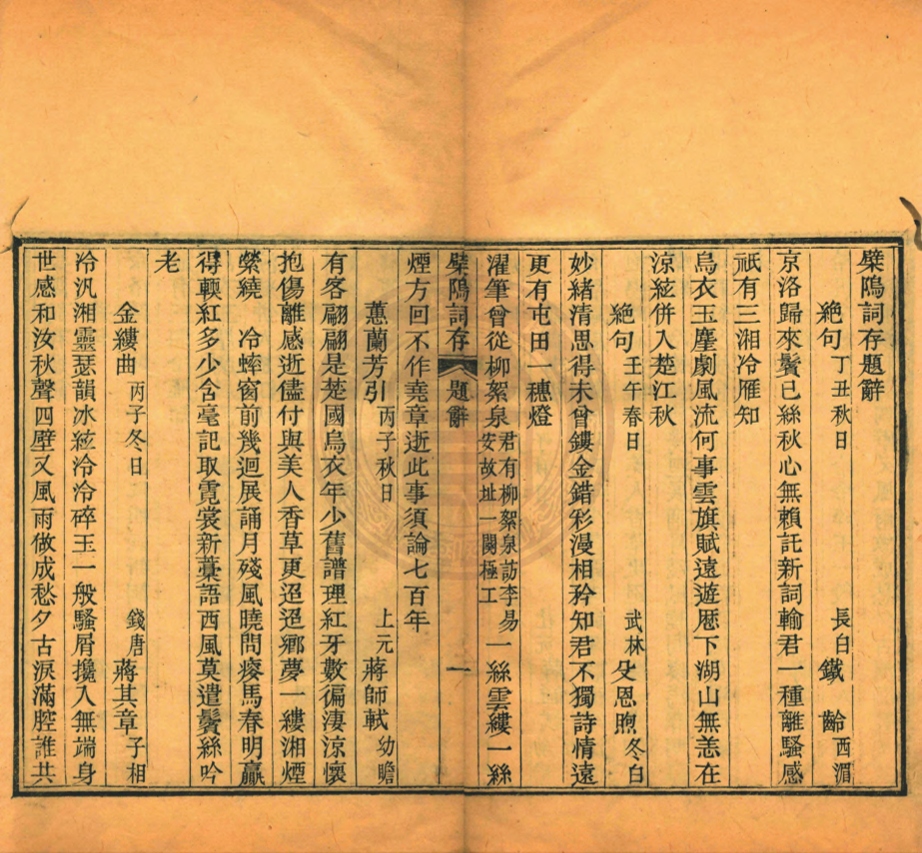 檗隖詞存題辭
絶句 丁丑秋日 長白 鐵齡 西湄
京洛歸來鬢已絲秋心無賴託新詞輸君一種離騷感
祇有三湘冷雁知
烏衣玉麈劇風流何事雲旗賦遠遊歷下湖山無恙在
涼絃併入楚江秋
絶句 壬午春日 武林 殳恩煦 冬白
妙緒清思得未曾鏤金錯彩漫相矜知君不獨詩情遠
更有屯田一穗燈
濯筆曾從柳絮泉 君有柳絮泉訪李易安故址一闋極工 一絲雲縷一絲
檗隖詞存 題辭 一
煙方回不作堯章逝此事須論七百年
蕙蘭芳引 丙子秋日 上元 蔣師軾 幼瞻
有客翩翩是楚國烏衣年少舊譜理紅牙數徧淒涼懷
抱傷離感逝儘付與美人香草更迢迢鄉夢一縷湘煙
縈繞 冷蛼窗前幾迴展誦月殘風曉問瘦馬春明贏
得輭紅多少含毫記取霓裳新藁語西風莫遣鬢絲吟
老
金縷曲 丙子冬日 錢唐 蔣其章 子相
冷汎湘靈瑟韻冰絃泠泠碎玉一般騷屑攙入無端身
世感和汝秋聲四壁又風雨做成愁夕古淚滿腔誰共